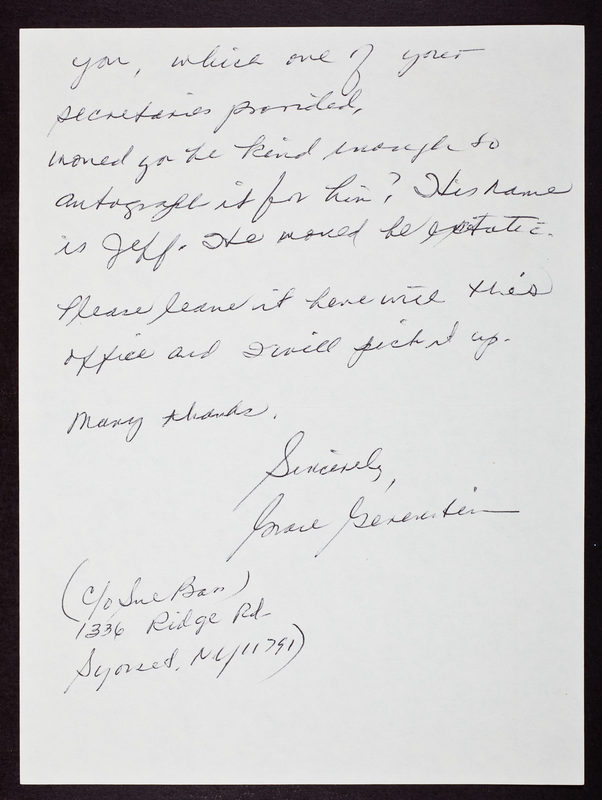 you, which one of your
secretaries provided,
would you be kind enough to
autograph it for him? His name
is Jeff. He would be ecstatic.
Please leave it here with this
office and I will pick it up.
Many thanks.
Sincerely,
Grace
(c/o Sue Bass)
1336 Ridge Rd
Syosset, NY 11791)